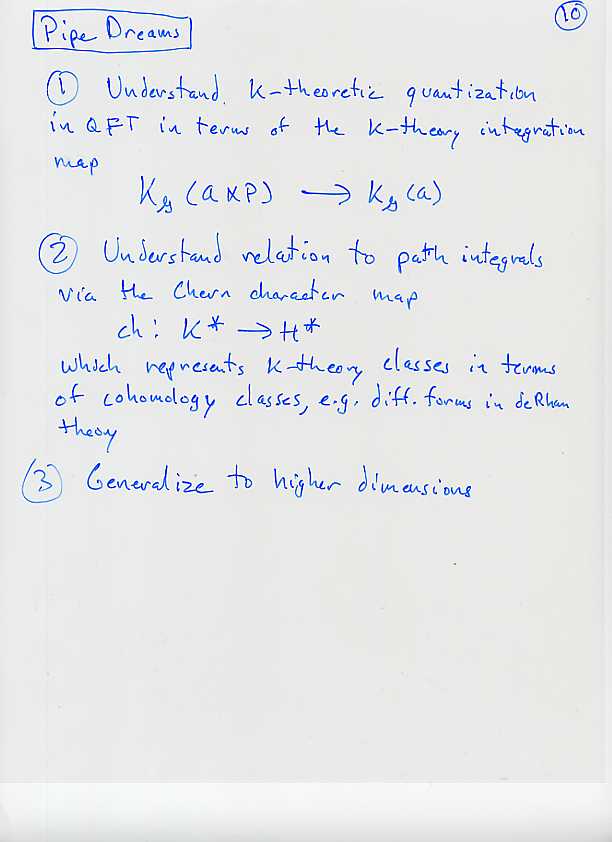 Pipe Dreams
10
① Understand K-theoretic quantization
in QFT in terms of the K-theory integration
map
K𝓰 (a × P) → K𝓰 (a)
② Understand relation to path integrals
via the Chern character map
ch: K* → H*
which represents K-theory classes in terms
of cohomology classes, e.g. diff. forms in deRham
theory
③ Generalize to higher dimensions